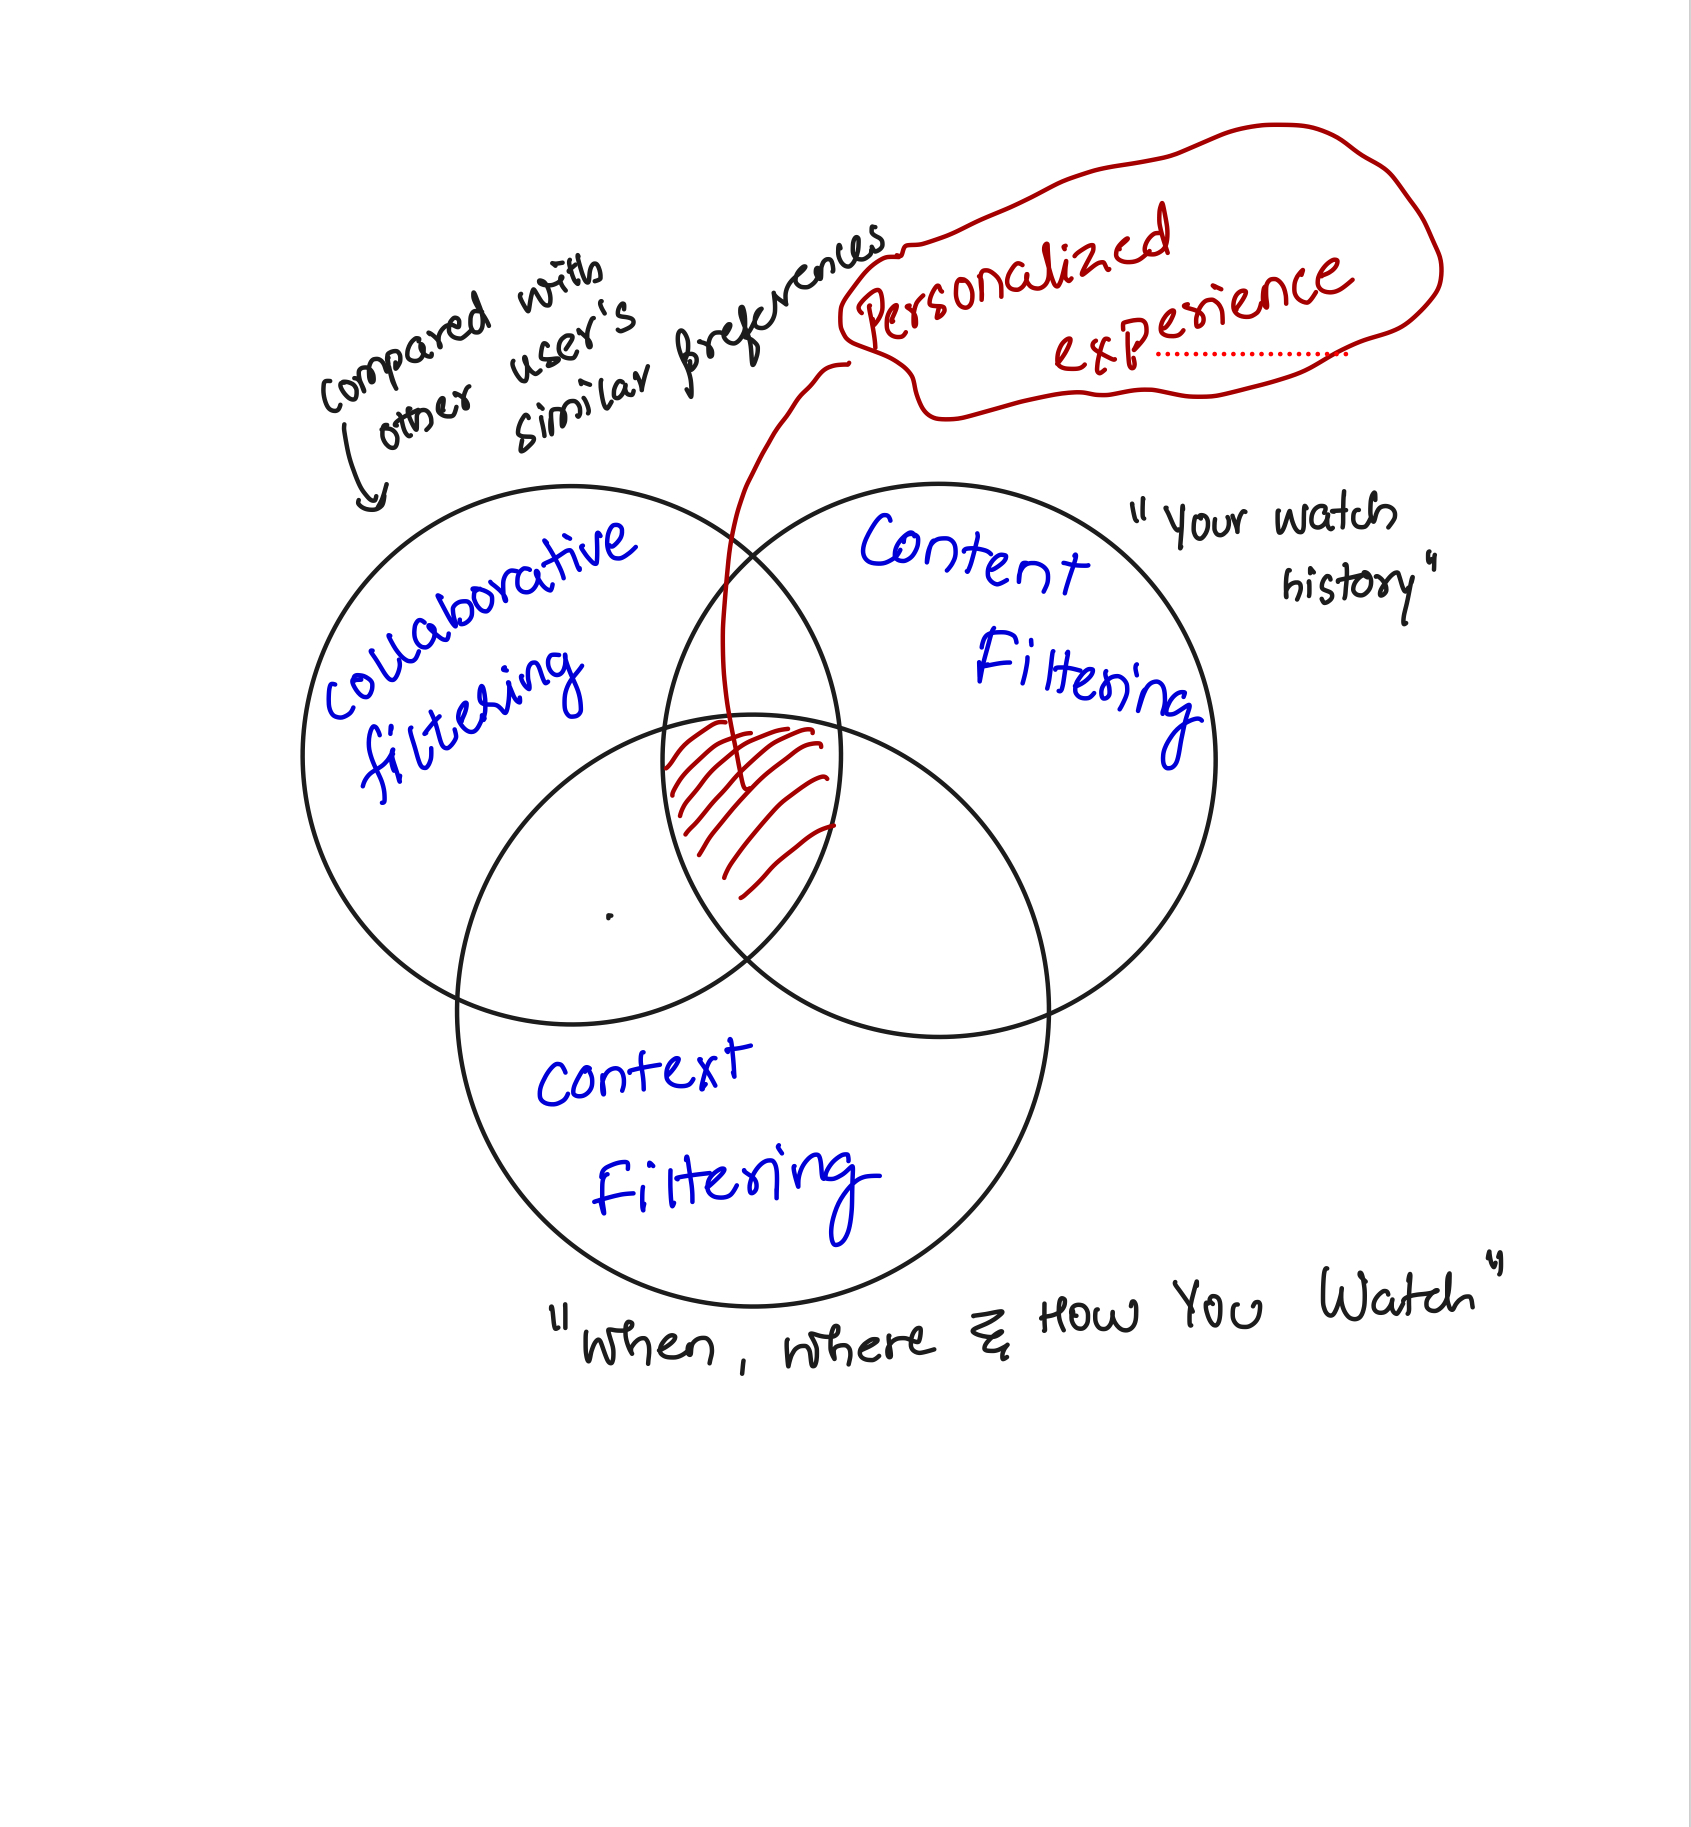 compared with
other user's
similar preferences
Personalized
experience
collaborative
filtering
Content
Filtering
"Your watch
history"
Context
Filtering
"When, where & How You Watch"